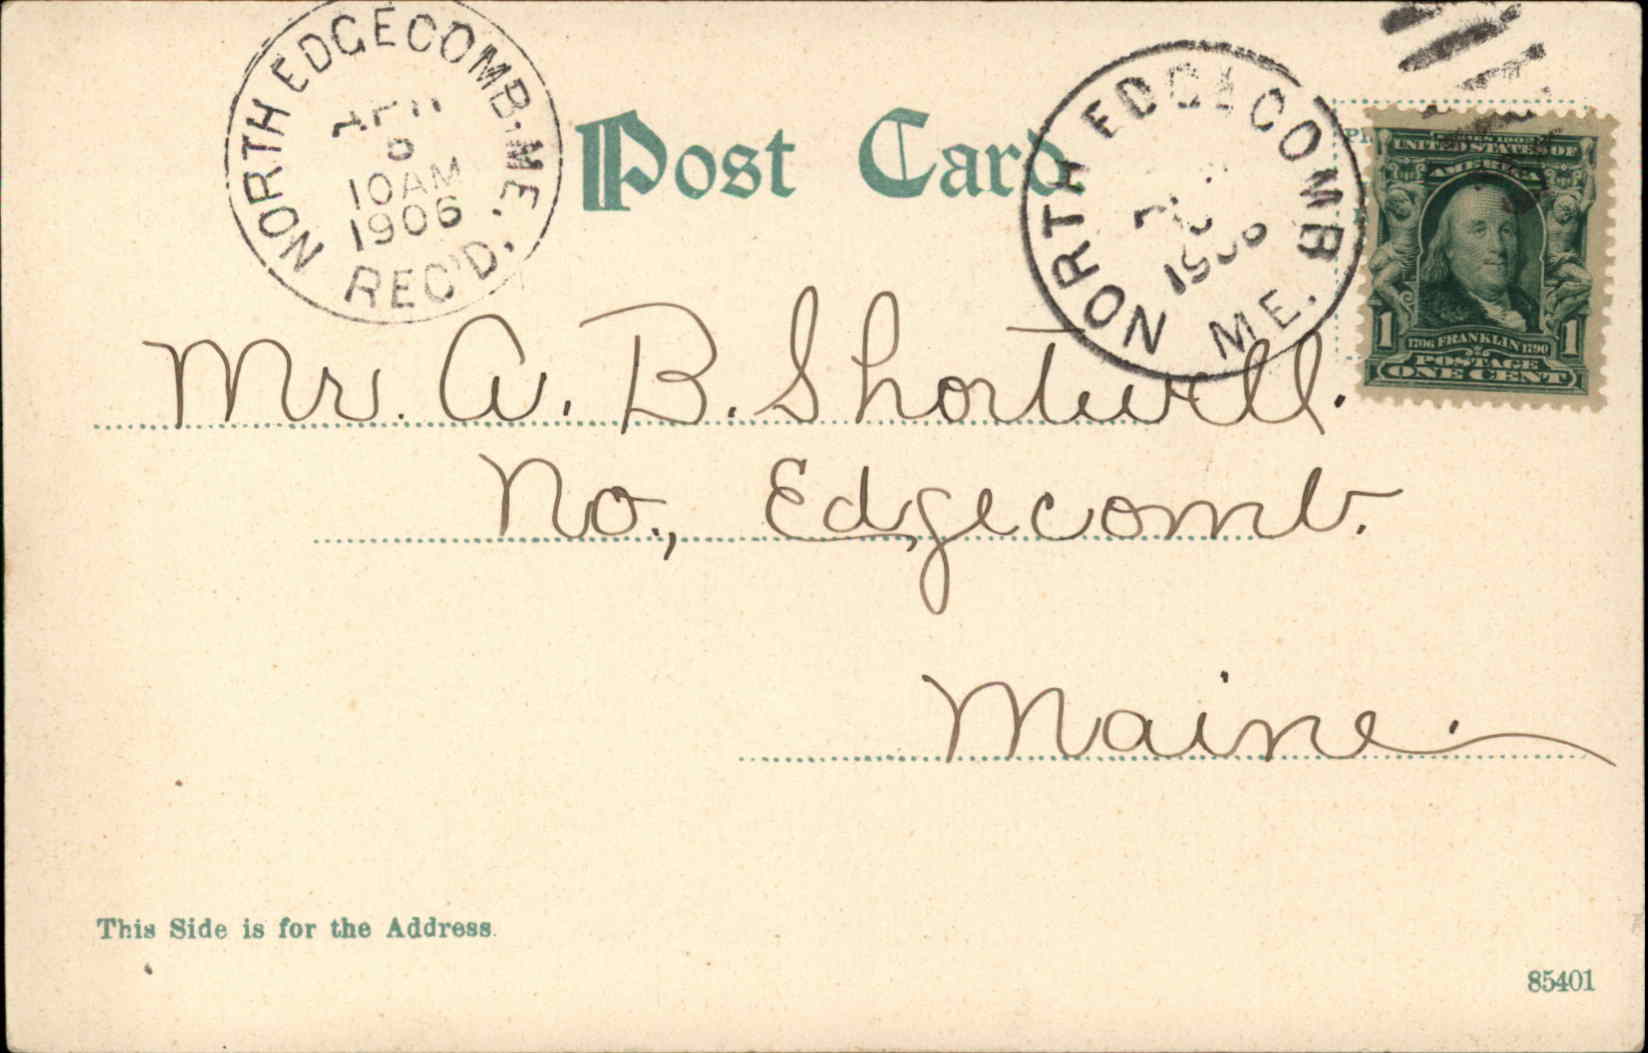 NORTH EDGECOMB, ME.
10 AM
1906
REC'D.
Post Card.
NORTH EDGECOMB
ME.
UNITED STATES OF
AMERICA
1 1
1706 FRANKLIN 1790
POSTAGE
ONE CENT
Mr. A. B. Shortwell.
No., Edgecomb.
Maine.
This Side is for the Address.
85401